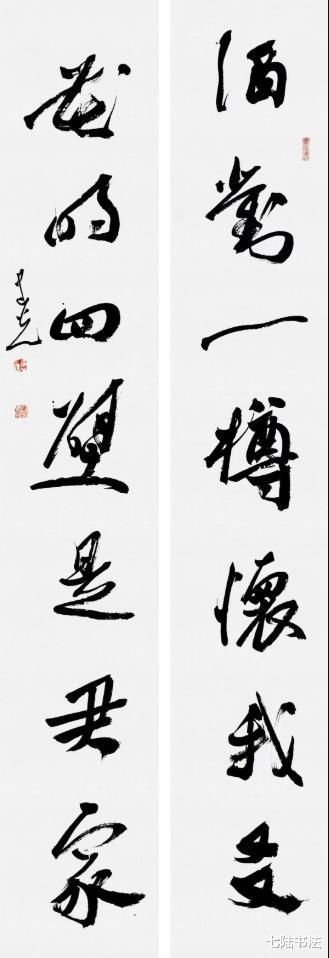 酒對一樽懷我友
花時四壁是君家
七陆书法